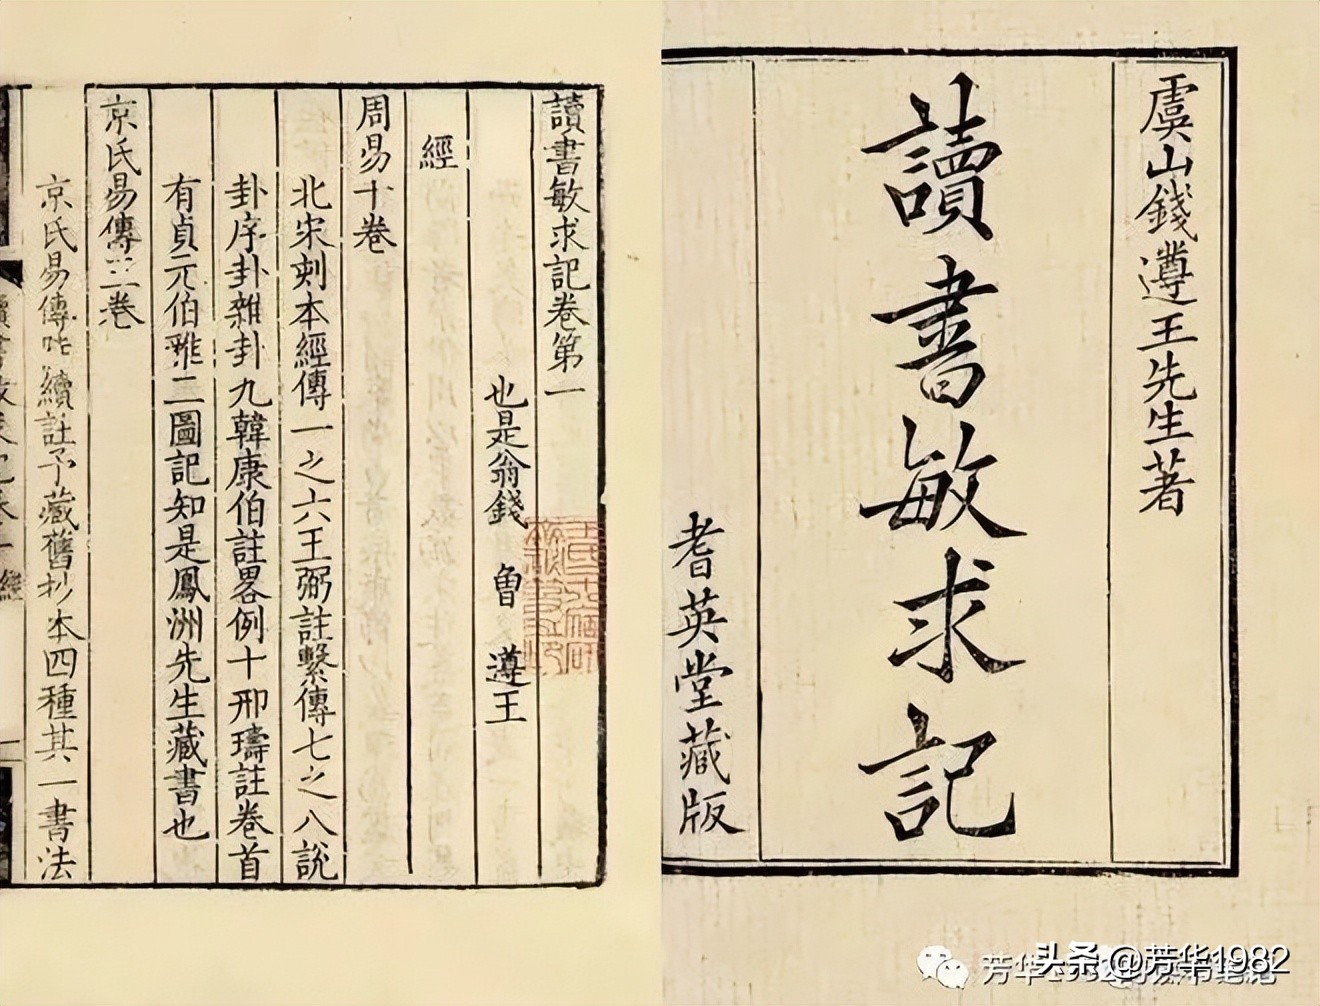 虞山錢遵王先生著
讀書敏求記
耆英堂藏版
讀書敏求記卷第一
也是翁錢 曾 遵王
經
周易十卷
北宋刻本經傳一之六王弼註繫傳七之八說
卦序卦雜卦九韓康伯註畧例十邢璹註卷首
有貞元伯雅二圖記知是鳳洲先生藏書也
京氏易傳三卷
京氏易傳 績註予藏舊抄本四種其一書法
頭条 @芳华1982